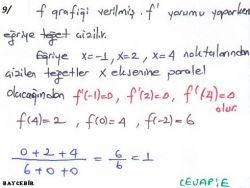 9/ f grafiği verilmiş. f' yorumu yaparken
eğriye teğet çizilir.
Eğriye x=-1, x=2, x=4 noktalarından
çizilen teğetler x eksenine paralel
olacağından f'(-1)=0, f'(2)=0, f'(4)=0
olur.
f(4)=2, f(0)=4, f(-2)=6
0+2+4 / 6+0+0 = 6/6 = 1
CEVAP:E
BAYCEBİR